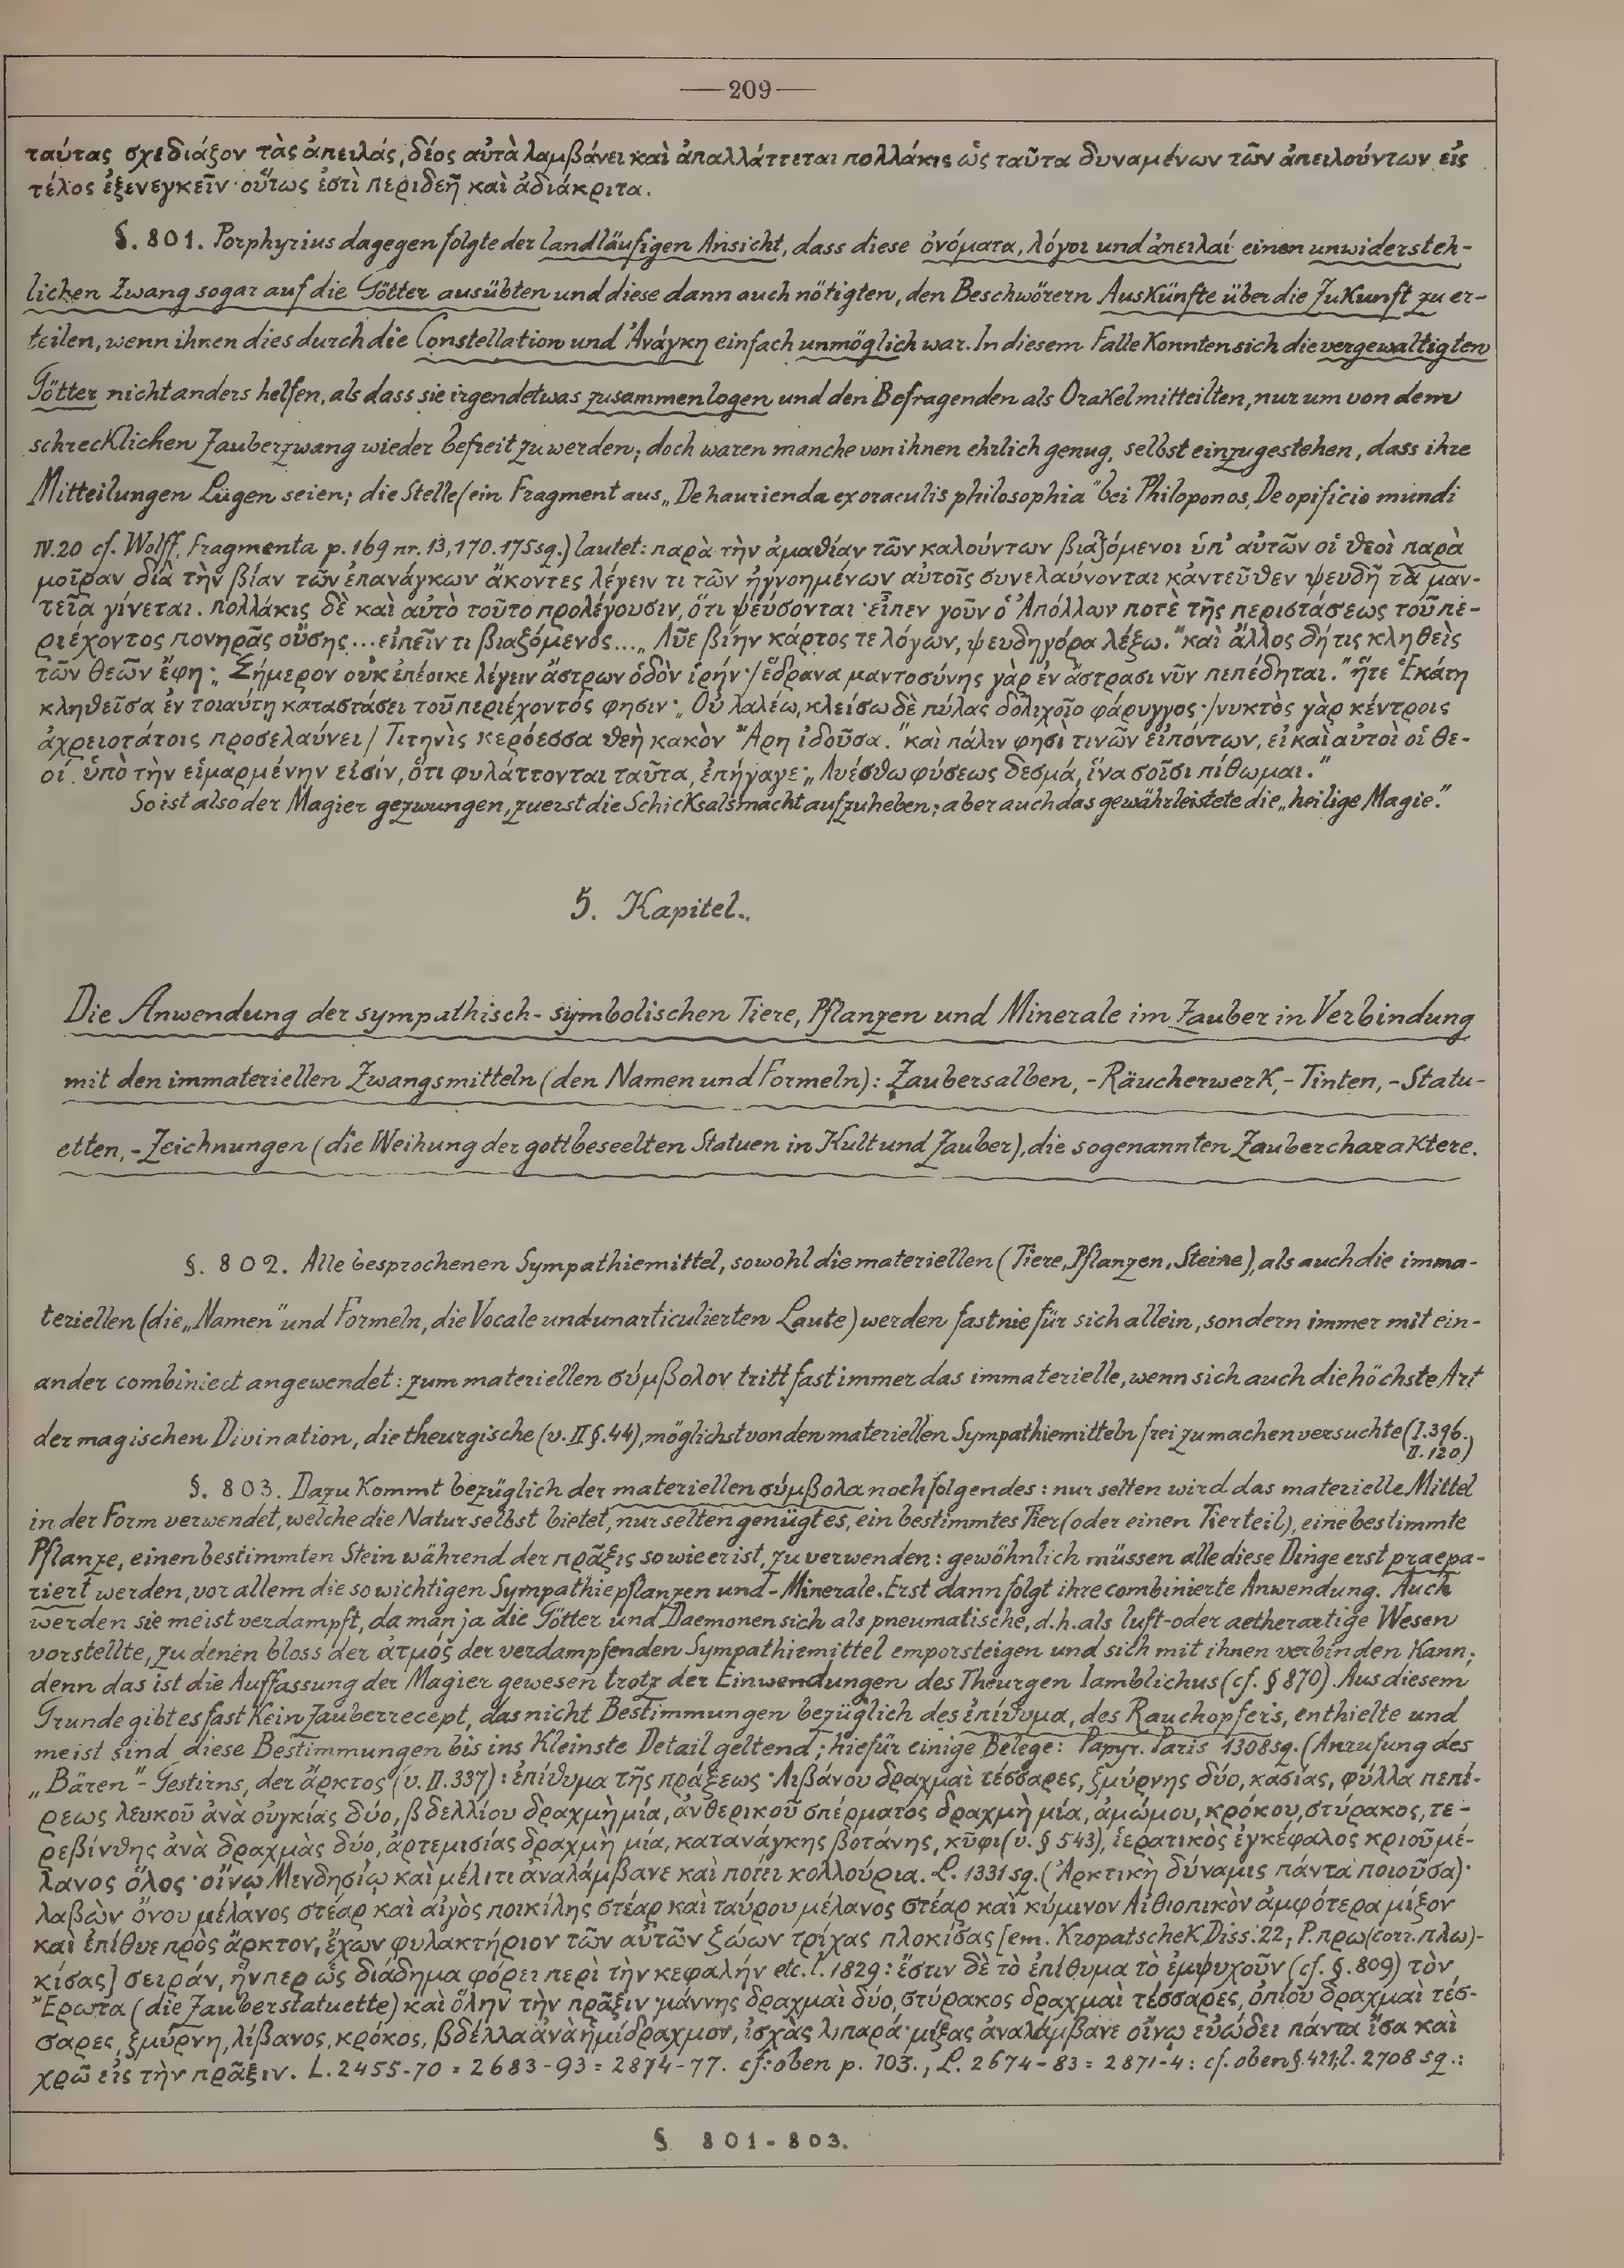 —209—
ταύτας σχεδιάξον τὰς ἀπειλάς, δέος αὐτὰ λαμβάνει καὶ ἀπαλλάττεται πολλάκις ὡς ταῦτα δυναμένων τῶν ἀπειλούντων εἰς
τέλος ἐξενεγκεῖν· οὕτως ἐστὶ περιδεῆ καὶ ἀδιάκριτα.
§. 801. Porphyrius dagegen folgte der landläufigen Ansicht, dass diese ὀνόματα, λόγοι und ἀπειλαί einen unwidersteh-
lichen Zwang sogar auf die Götter ausübten und diese dann auch nötigten, den Beschwörern Auskünfte über die Zukunft zu er-
teilen, wenn ihnen dies durch die Constellation und Ἀνάγκη einfach unmöglich war. In diesem Falle konnten sich die vergewaltigten
Götter nicht anders helfen, als dass sie irgendetwas zusammenlogen und den Befragenden als Orakel mitteilten, nur um von dem
schrecklichen Zauberzwang wieder befreit zu werden; doch waren manche von ihnen ehrlich genug, selbst einzugestehen, dass ihre
Mitteilungen Lügen seien; die Stelle (ein Fragment aus „De haurienda ex oraculis philosophia" bei Philoponos, De opificio mundi
IV.20 cf. Wolff, Fragmenta p. 169 nr. 13, 170. 175 sq.) lautet: παρὰ τὴν ἀμαθίαν τῶν καλούντων βιαζόμενοι ὑπ' αὐτῶν οἱ θεοὶ παρὰ
μοῖραν διὰ τὴν βίαν τῶν ἐπανάγκων ἄκοντες λέγειν τι τῶν ἠγνοημένων αὐτοῖς συνελαύνονται κἀντεῦθεν ψευδῆ τὰ μαν-
τεῖα γίνεται. πολλάκις δὲ καὶ αὐτὸ τοῦτο προλέγουσιν, ὅτι ψεύσονται· εἶπεν γοῦν ὁ Ἀπόλλων ποτὲ τῆς περιστάσεως τοῦ πε-
ριέχοντος πονηρᾶς οὔσης... εἰπεῖν τι βιαζόμενος... „Λῦε βίην κάρτος τε λόγων, ψευδηγόρα λέξω." καὶ ἄλλος δή τις κληθεὶς
τῶν θεῶν ἔφη: „Σήμερον οὐκ ἐπέοικε λέγειν ἄστρων ὁδὸν ἱρήν·/ ἕδρανα μαντοσύνης γὰρ ἐν ἄστρασι νῦν πεπέδηται." ἥτε Ἑκάτη
κληθεῖσα ἐν τοιαύτῃ καταστάσει τοῦ περιέχοντός φησιν· „Οὐ λαλέω, κλείσω δὲ πύλας δολιχοῖο φάρυγγος·/ νυκτὸς γὰρ κέντροις
ἀχρειοτάτοις προσελαύνει/ Τιτηνὶς κερόεσσα θεὴ κακὸν Ἄρη ἰδοῦσα." καὶ πάλιν φησὶ τινῶν εἰπόντων, εἰ καὶ αὐτοὶ οἱ θε-
οί ὑπὸ τὴν εἱμαρμένην εἰσίν, ὅτι φυλάττονται ταῦτα, ἐπήγαγε· „Λυέσθω φύσεως δεσμά, ἵνα σοῖσι πίθωμαι."
So ist also der Magier gezwungen, zuerst die Schicksalsmacht aufzuheben; aber auch das gewährleistete die „heilige Magie."
5. Kapitel.
Die Anwendung der sympathisch-symbolischen Tiere, Pflanzen und Minerale im Zauber in Verbindung
mit den immateriellen Zwangsmitteln (den Namen und Formeln): Zaubersalben, -Räucherwerk, -Tinten, -Statu-
etten, -Zeichnungen (die Weihung der gottbeseelten Statuen in Kult und Zauber), die sogenannten Zaubercharaktere.
§. 802. Alle besprochenen Sympathiemittel, sowohl die materiellen (Tiere, Pflanzen, Steine), als auch die imma-
teriellen (die „Namen" und Formeln, die Vocale und unarticulierten Laute) werden fast nie für sich allein, sondern immer mit ein-
ander combiniert angewendet: zum materiellen σύμβολον tritt fast immer das immaterielle, wenn sich auch die höchste Art
der magischen Divination, die theurgische (v. II §.44), möglichst von den materiellen Sympathiemitteln frei zu machen versuchte (I.396.
II.120)
§. 803. Dazu kommt bezüglich der materiellen σύμβολα noch folgendes: nur selten wird das materielle Mittel
in der Form verwendet, welche die Natur selbst bietet, nur selten genügt es, ein bestimmtes Tier (oder einen Tierteil), eine bestimmte
Pflanze, einen bestimmten Stein während der πρᾶξις so wie er ist, zu verwenden: gewöhnlich müssen alle diese Dinge erst praepa-
riert werden, vor allem die so wichtigen Sympathiepflanzen und -Minerale. Erst dann folgt ihre combinierte Anwendung. Auch
werden sie meist verdampft, da man ja die Götter und Daemonen sich als pneumatische, d.h. als luft- oder aetherartige Wesen
vorstellte, zu denen bloss der ἀτμός der verdampfenden Sympathiemittel emporsteigen und sich mit ihnen verbinden kann;
denn das ist die Auffassung der Magier gewesen trotz der Einwendungen des Theurgen Iamblichus (cf. § 870). Aus diesem
Grunde gibt es fast kein Zauberrecept, das nicht Bestimmungen bezüglich des ἐπίθυμα, des Rauchopfers, enthielte und
meist sind diese Bestimmungen bis ins Kleinste Detail geltend; hiefür einige Belege: Papyr. Paris 1308 sq. (Anrufung des
„Bären"-Gestirns, der ἄρκτος (v. II.337): ἐπίθυμα τῆς πράξεως· λιβάνου δραχμαὶ τέσσαρες, ζμύρνης δύο, κασίας, φύλλα πεπέ-
ρεως λευκοῦ ἀνὰ οὐγκίας δύο, βδελλίου δραχμὴ μία, ἀνθερικοῦ σπέρματος δραχμὴ μία, ἀμώμου, κρόκου, στύρακος, τε-
ρεβίνθης ἀνὰ δραχμὰς δύο, ἀρτεμισίας δραχμὴ μία, κατανάγκης βοτάνης, κῦφι (v. § 543), ἱερατικὸς ἐγκέφαλος κριοῦ μέ-
λανος ὅλος· οἴνῳ Μενδησίῳ καὶ μέλιτι ἀναλάμβανε καὶ ποίει κολλούρια. L. 1331 sq. (Ἀρκτικὴ δύναμις πάντα ποιοῦσα)·
λαβὼν ὄνου μέλανος στέαρ καὶ αἰγὸς ποικίλης στέαρ καὶ ταύρου μέλανος στέαρ καὶ κύμινον Αἰθιοπικὸν ἀμφότερα μίξον
καὶ ἐπίθυε πρὸς ἄρκτον, ἔχων φυλακτήριον τῶν αὐτῶν ζώων τρίχας πλοκίσας [em. Kropatschek, Diss. 22; P. πρω (corr. πλω)-
κίσας] σειράν, ἥνπερ ὡς διάδημα φόρει περὶ τὴν κεφαλήν etc. l. 1829: ἔστιν δὲ τὸ ἐπίθυμα τὸ ἐμψυχοῦν (cf. §. 809) τὸν
Ἔρωτα (die Zauberstatuette) καὶ ὅλην τὴν πρᾶξιν· μάννης δραχμαὶ δύο, στύρακος δραχμαὶ τέσσαρες, ὀπίου δραχμαὶ τέσ-
σαρες, ζμύρνη, λίβανος, κρόκος, βδέλλα ἀνὰ ἡμίδραχμον, ἰσχὰς λιπαρά· μίξας ἀναλάμβανε οἴνῳ εὐώδει πάντα ἴσα καὶ
χρῶ εἰς τὴν πρᾶξιν. L. 2455-70 = 2683-93 = 2874-77. cf. oben p. 103., L. 2674-83 = 2871-4: cf. oben §. 421; l. 2708 sq.:
§ 801-803.